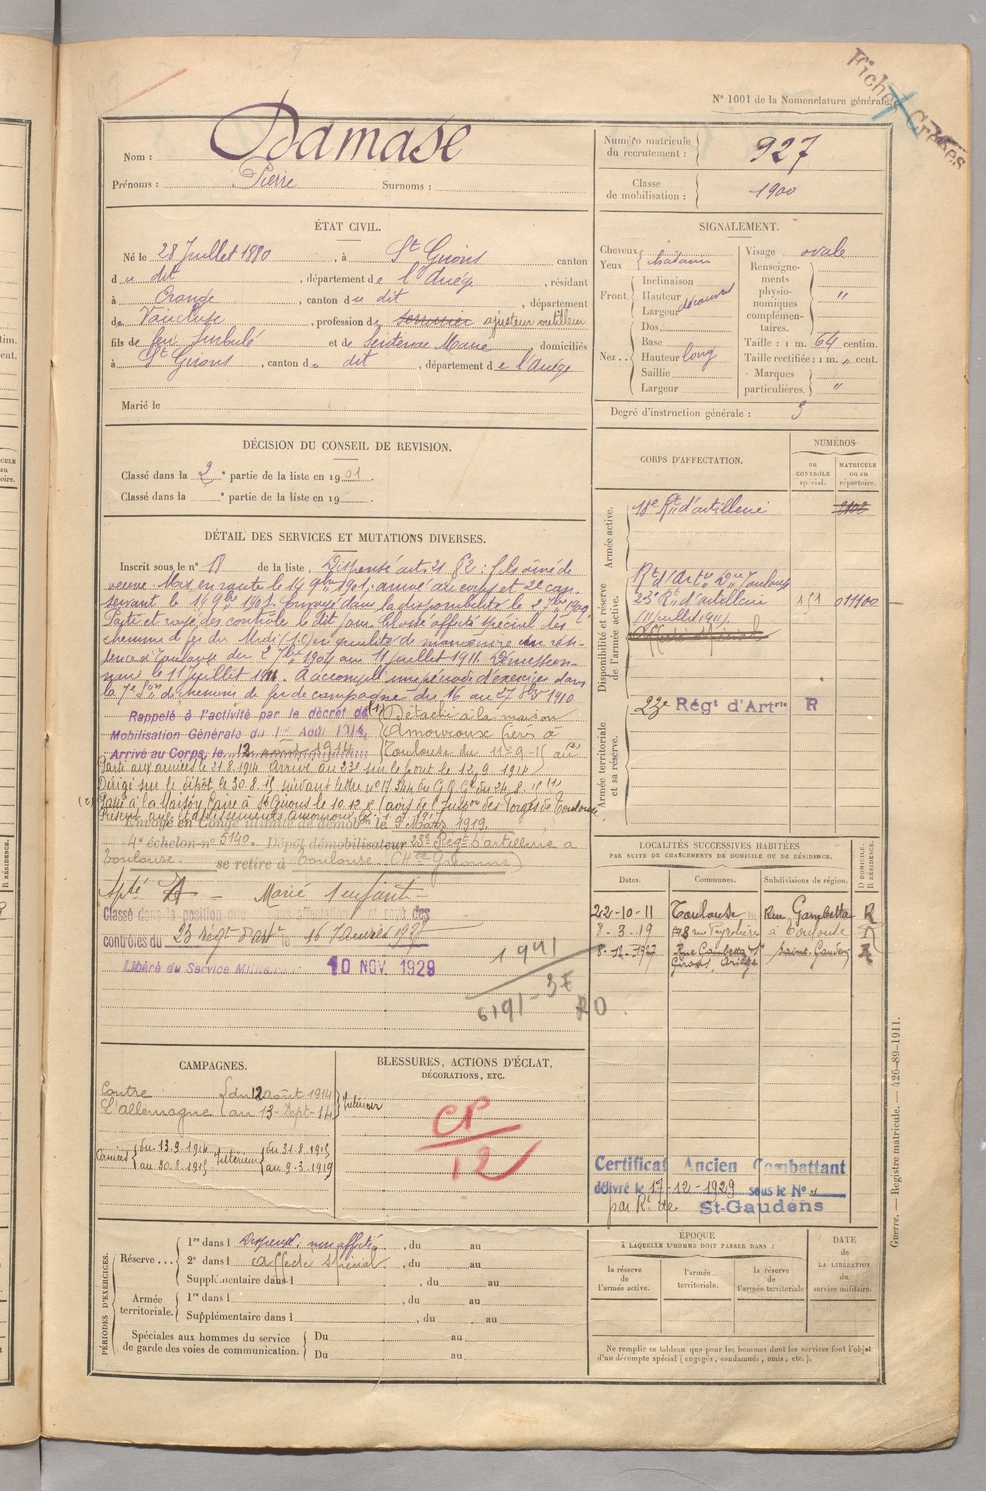 Fiches Croisées
N° 1001 de la Nomenclature générale.
Nom : Damase
Prénoms : Pierre Surnoms :
Numéro matricule du recrutement : 927
Classe de mobilisation : 1900
ÉTAT CIVIL.
Né le 28 Juillet 1880, à St Girons canton
du dit, département de l'Ariège, résidant
à Orange, canton du dit, département
de Vaucluse, profession de serrurier ajusteur outilleur
fils de feu et de Sentenac Marie, domiciliés
à St Girons, canton du dit, département de l'Ariège
Marié le
SIGNALEMENT.
Cheveux châtains
Yeux
Front. Inclinaison
Hauteur découvert
Largeur
Nez.. Dos
Base
Hauteur long
Saillie
Largeur
Visage ovale
Renseignements physionomiques complémentaires. "
Taille : 1 m. 64 centim.
Taille rectifiée : 1 m. " cent.
Marques particulières. "
Degré d'instruction générale : 3
DÉCISION DU CONSEIL DE REVISION.
Classé dans la 2e partie de la liste en 1901.
Classé dans la e partie de la liste en 19 .
DÉTAIL DES SERVICES ET MUTATIONS DIVERSES.
Inscrit sous le n° de la liste. Dispensé art. 21 § 2 : fils aîné de
veuve. Mis en route le 14 9bre 1901, arrivé au corps et 2e can.
servant le 14 9bre 1901. Envoyé dans la disponibilité le
Porté et rayé des contrôles le dit jour. Classé affecté spécial des
chemins de fer du Midi en qualité de manœuvre en rési-
dence à Toulouse du 2 7bre 1904 au 11 juillet 1911. Démission-
naire le 11 Juillet 1911. A accompli une période d'exercice dans
la 7e Son de chemins de fer de campagne du 16 au 27 8bre 1910
Rappelé à l'activité par le décret de
Mobilisation Générale du 1er Août 1914.
Arrivé au Corps, le 12 août 1914
(1) Détaché à la maison
Amouroux frères à
Toulouse du 11-9-15 au (2)
Parti aux armées le 21.8.1914 Arrivé au 23e sur le front le 12.9.1914
Dirigé sur le dépôt le 30.8.15 suivant lettre n° 17344 du G.Q.Gal du 24.8.15 (1)
(2) Passé à la Maison Faire à St Girons le 10.12.15 (avis de l'Inspon des Forges de Toulouse
Envoyé en Congé illimité de démobon le 9 Mars 1919.
4e échelon n° 5140. Dépôt démobilisateur 23e Régt d'artillerie à
Toulouse. se retire à Toulouse (Hte Garonne)
Marié 1 enfant
Classé dans la position dite sans affectation et rayé des
contrôles du 23 Regt d'art le 16 Janvier 1927
Libéré du Service Militaire 10 NOV. 1929
1941
6191-37
RO
CORPS D'AFFECTATION.
NUMÉROS
au contrôle spécial.
matricule ou au répertoire.
Armée active.
18e Rt d'artillerie 2102
Disponibilité et réserve de l'armée active.
Rt d'Artie Toulouse
23e Rt d'artillerie 151 011100
(11 juillet 1911)
Affecté spécial
Armée territoriale et sa réserve.
23e Régt d'Artrie R
LOCALITÉS SUCCESSIVES HABITÉES
PAR SUITE DE CHANGEMENTS DE DOMICILE OU DE RÉSIDENCE.
Dates. Communes. Subdivisions de région. D DOMICILE. R RÉSIDENCE.
22-10-11 Toulouse Rue Gambetta R
8-3-19 rue Peyrolière à Toulouse
8-12-1927 Rue Gambetta St Girons, Ariège Saint-Gaudens R
CAMPAGNES.
Contre l'Allemagne du 12 août 1914
au 13-Sept-14 Intérieur
Armées du 13.9.1914 au 30.8.1915
Intérieur du 31.8.1915 au 9.3.1919
BLESSURES, ACTIONS D'ÉCLAT,
DÉCORATIONS, ETC.
CP
12
Certificat Ancien Combattant
délivré le 17-12-1929 sous le N°
par Rt de St-Gaudens
PÉRIODES D'EXERCICES.
Réserve... 1re dans l Dispensé : non affecté, du au
2e dans l Affecté Spécial, du au
Supplémentaire dans l , du au
Armée territoriale. 1re dans l , du au
Supplémentaire dans l , du au
Spéciales aux hommes du service de garde des voies de communication. Du au
Du au
ÉPOQUE
À LAQUELLE L'HOMME DOIT PASSER DANS :
la réserve de l'armée active.
l'armée territoriale.
la réserve de l'armée territoriale
DATE de LA LIBÉRATION du service militaire.
Ne remplir ce tableau que pour les hommes dont les services font l'objet
d'un décompte spécial (engagés, condamnés, omis, etc.).
Guerre. — Registre matricule. — 426-89-1911.